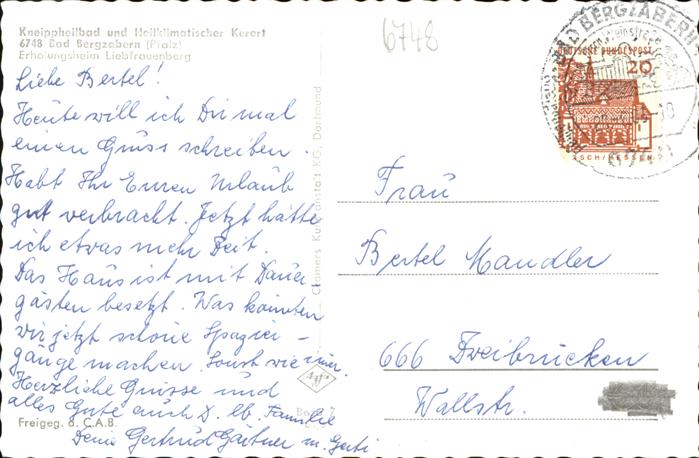 Kneippheilbad und Heilklimatischer Kurort
6748 Bad Bergzabern (Pfalz)
Erholungsheim Liebfrauenberg
Liebe Bertel!
Heute will ich Dir mal
einen Gruss schreiben.
Habt Ihr Euren Urlaub
gut verbracht. Jetzt hätte
ich etwas mehr Zeit.
Das Haus ist mit Dauer
gästen besetzt. Was könnten
wir jetzt schöne Spazier-
gänge machen. Sonst wie imer.
Herzliche Grüsse und
alles Gute auch D. lb. Familie
Deine Gertrud Gärtner u. Gerti
Freigeg. d. C.A.B.
Cramers Kunstanstalt KG, Dortmund
Agfa
6748
BAD BERGZABERN
DEUTSCHE BUNDESPOST
20
LORSCH/HESSEN
6748
Frau
Bertel Mandler
666 Zweibrücken
Wallstr.